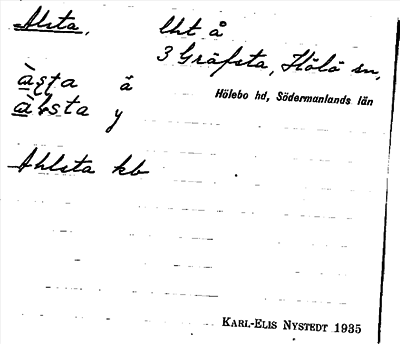 Alsta, lht å
3 Gräfsta, Hölö sn,
Hölebo hd, Södermanlands län
ä
y
Ahlsta kb
KARL-ELIS NYSTEDT 1935